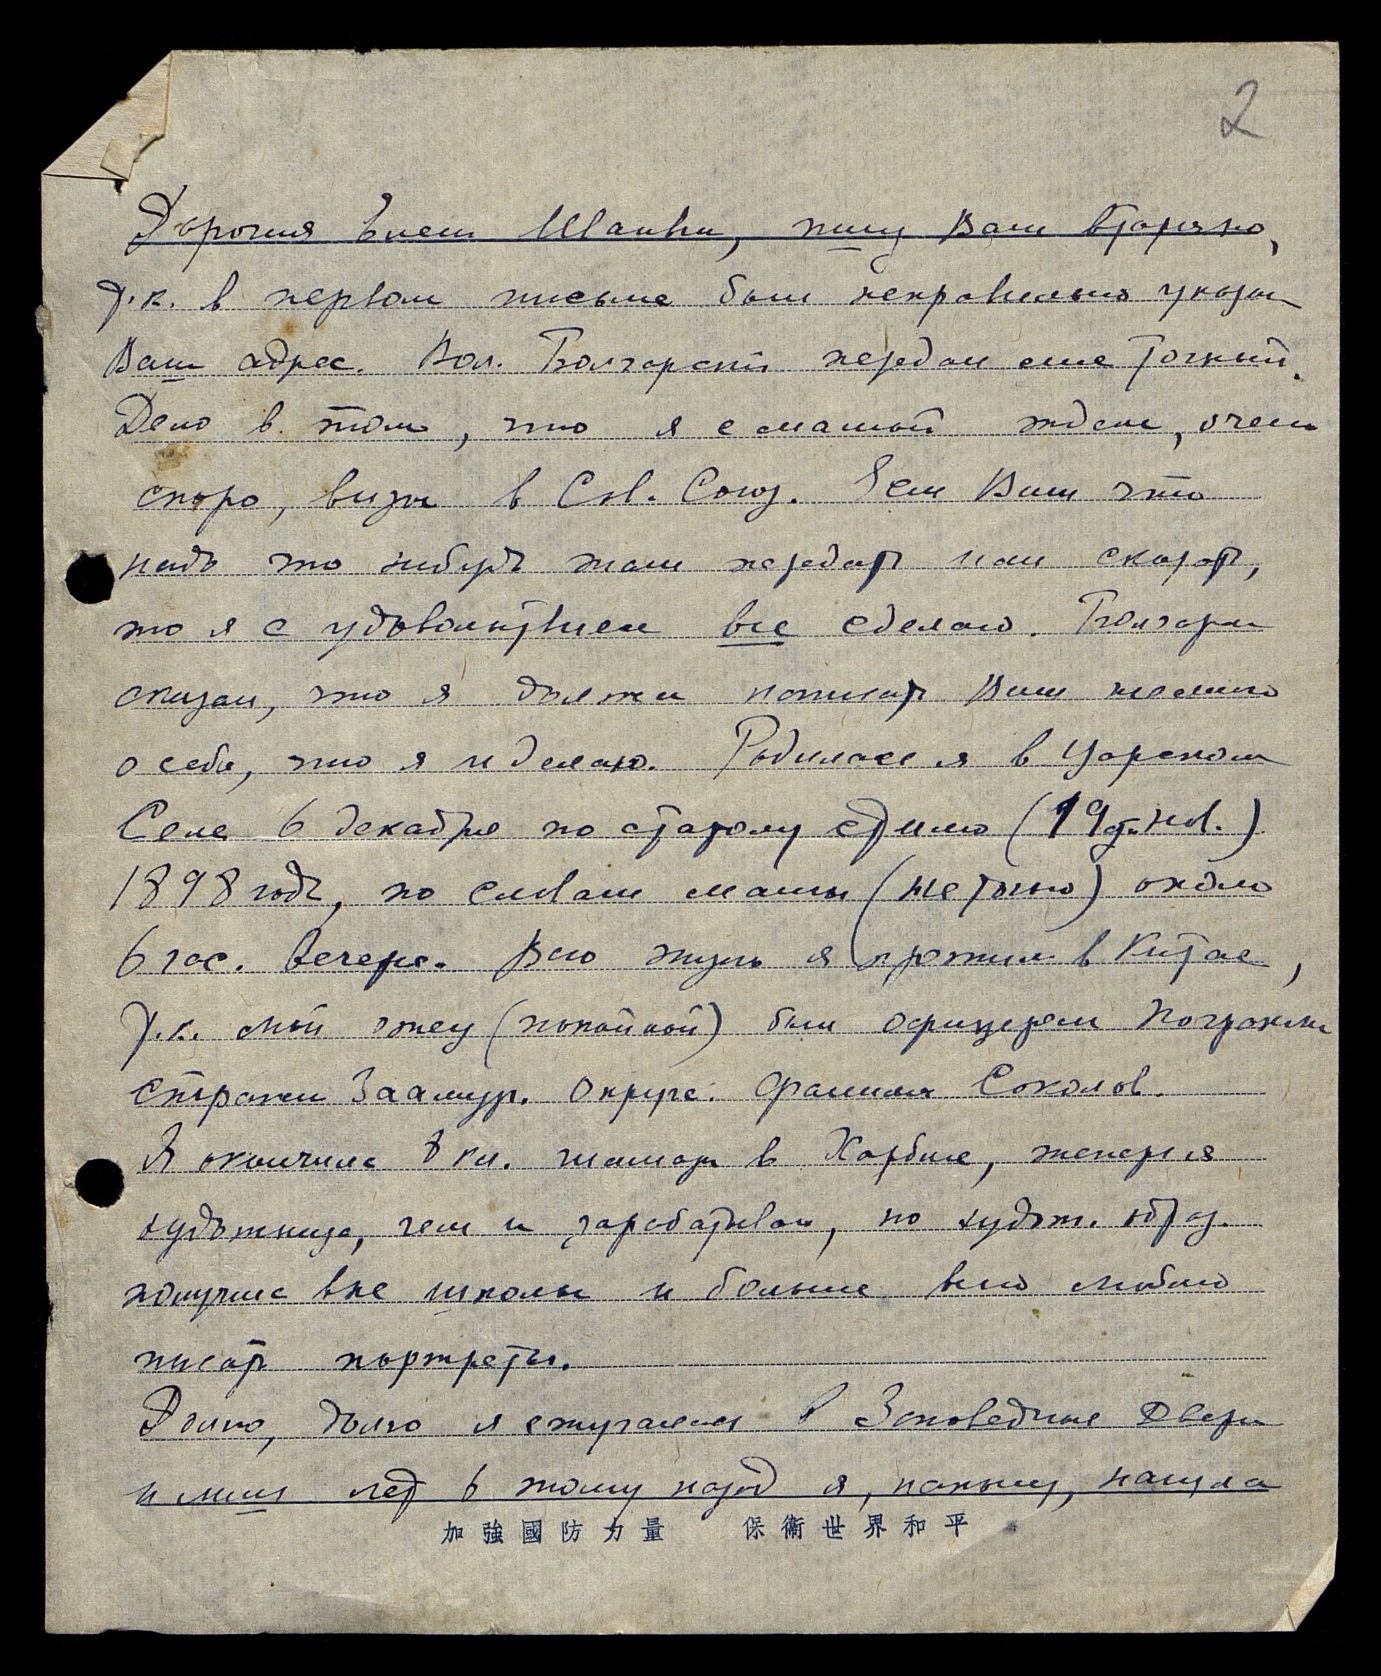 2
Дорогая Елена Ивановна, пишу Вам вторично,
т.к. в первом письме был неправильно указан
Ваш адрес. Вол. Болгарский передал мне точный.
Дело в том, что я с мамой ждем, очень
скоро, визы в Сов. Союз. Если Вам что
надо что нибудь там передать или сказать,
то я с удовольствием все сделаю. Болгарск
сказал, что я должна написать Вам немного
о себе, что я и делаю. Родилась я в Царском
Селе 6 декабря по старому стилю (19 д. нов.)
1898 года, по словам мамы (не точно) около
6 час. вечера. Всю жизнь я прожила в Китае,
т.к. мой отец (покойной) был офицером Погранич
стражи Заамур. Округа. Фамилия Соколов.
Я окончила 8 кл. гимназ в Харбине, теперь я
художница, чем и зарабатываю, но худож. образ.
получила вне школы и больше всего люблю
писать портреты.
Долго, долго я стучалась в Заповедные Двери
и лет 6 тому назад я, наконец, нашла
加強國防力量 保衛世界和平